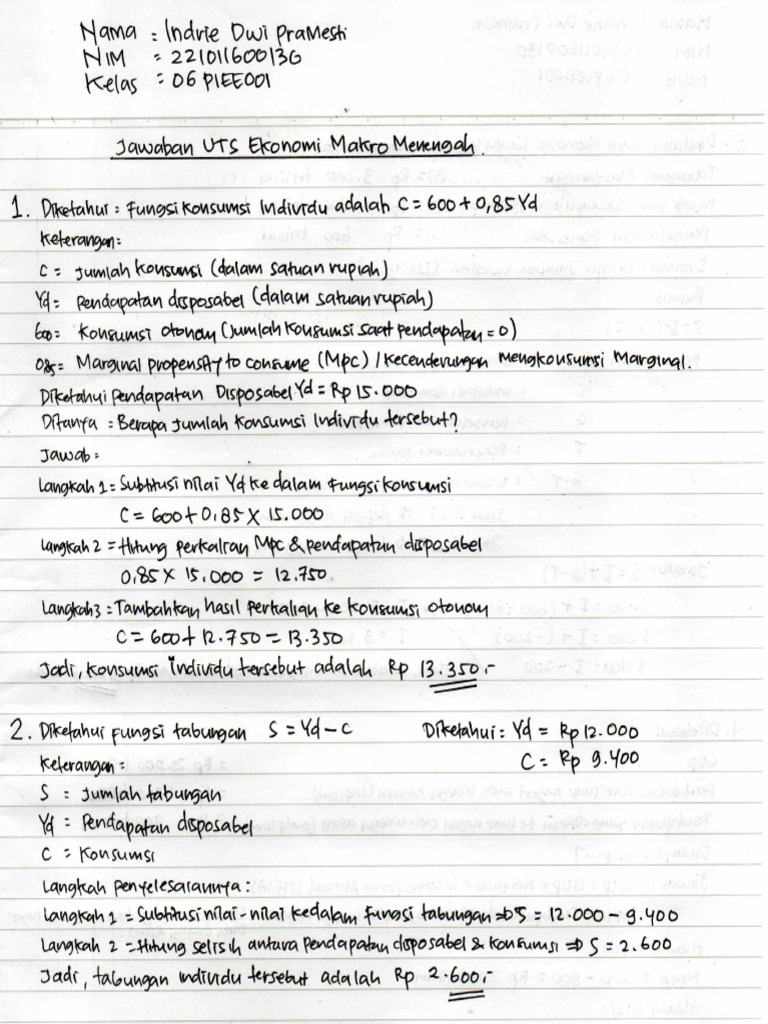 Nama : Indrie Dwi Pramesti
NIM : 221011600130
Kelas : 06PIEE001
Jawaban UTS Ekonomi Makro Menengah.
1. Diketahui : Fungsi konsumsi Individu adalah C = 600 + 0,85 Yd
Keterangan :
C = Jumlah konsumsi (dalam satuan rupiah)
Yd = Pendapatan disposabel (dalam satuan rupiah)
600 = Konsumsi otonom (Jumlah konsumsi saat pendapatan = 0)
0,85 = Marginal propensity to consume (Mpc) / kecenderungan mengkonsumsi Marginal.
Diketahui pendapatan Disposabel Yd = Rp 15.000
Ditanya : Berapa Jumlah konsumsi Individu tersebut?
Jawab :
Langkah 1 = Subtitusi nilai Yd ke dalam Fungsi konsumsi
C = 600 + 0,85 X 15.000
Langkah 2 = Hitung perkalian Mpc & pendapatan disposabel
0,85 X 15.000 = 12.750.
Langkah 3 = Tambahkan hasil perkalian ke konsumsi otonom
C = 600 + 12.750 = 13.350
Jadi, konsumsi individu tersebut adalah Rp 13.350,-
2. Diketahui fungsi tabungan S = Yd - C Diketahui : Yd = Rp 12.000
Keterangan : C = Rp 9.400
S = Jumlah tabungan
Yd = Pendapatan disposabel
C = Konsumsi
Langkah penyelesaiannya :
Langkah 1 = Subtitusi nilai-nilai kedalam fungsi tabungan ⇒ S = 12.000 - 9.400
Langkah 2 = Hitung selisih antara pendapatan disposabel & konsumsi ⇒ S = 2.600
Jadi, tabungan individu tersebut adalah Rp 2.600,-